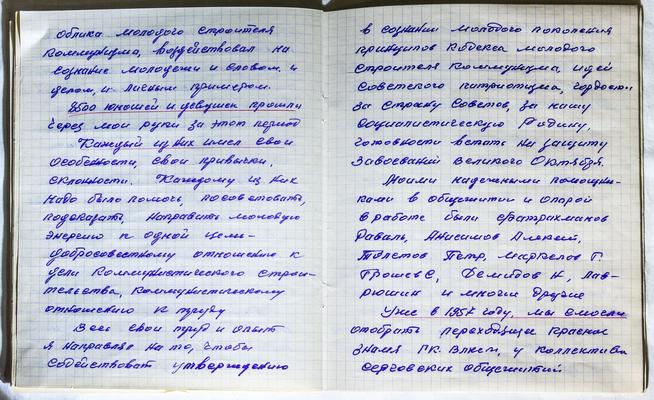 облика молодого строителя
коммунизма, воздействовал на
сознание молодежи и словом и
делом, и личным примером.
8500 юношей и девушек прошли
через мои руки за этот период
Каждый из них имел свои
особенности, свои привычки,
склонности. Каждому из них
надо было помочь, посоветовать,
подсказать, направить молодую
энергию к одной цели-
добросовестному отношению к
цели коммунистического строи-
тельства, коммунистическому
отношению к труду
Весь свой труд и опыт
я направлял на то, чтобы
содействовать утверждению
в сознании молодого поколения
принципов Кодекса молодого
строителя коммунизма, идей
Советского патриотизма, гордости
за страну Советов, за нашу
социалистическую Родину,
готовности встать на защиту
завоеваний Великого Октября.
Моими надежными помощни-
ками в общежитии и опорой
в работе были Фатрахманов
Раваль, Анисимов Алексей,
Толстов Петр, Маркелов Г.
Грошев С, Демидов Н, Лав-
рюшин и многие другие
Уже в году, мы смогли
отобрать переходящее Красное
знамя ГК. ВЛКСМ, у коллектива
серовских общежитий